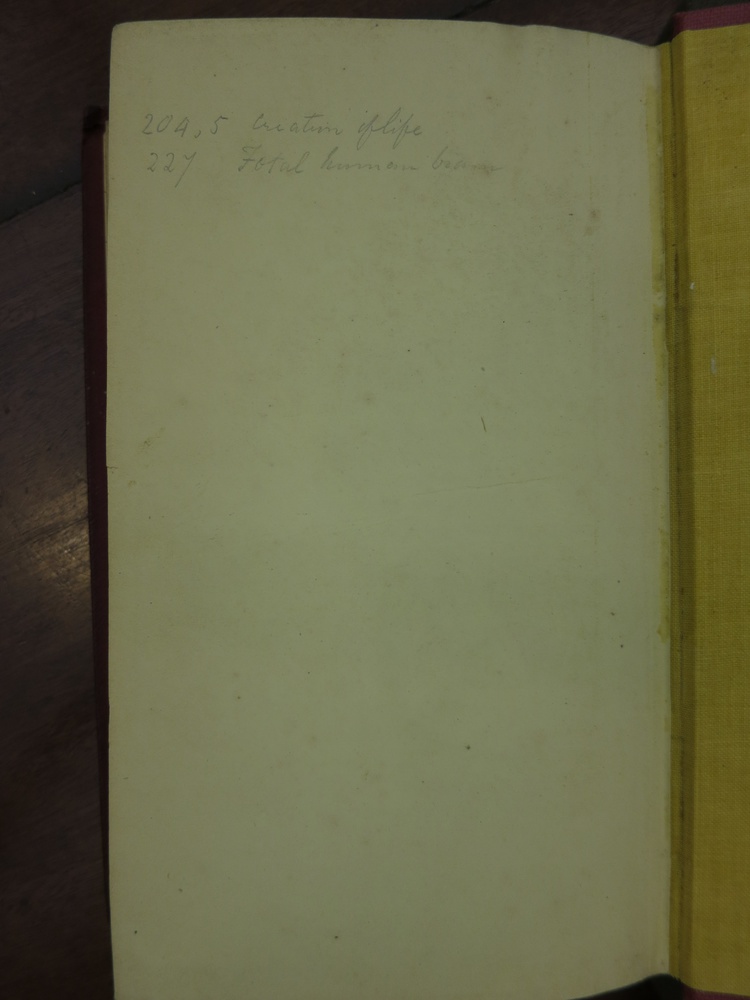 204, 5 Creation of life
227 Fotal human brain